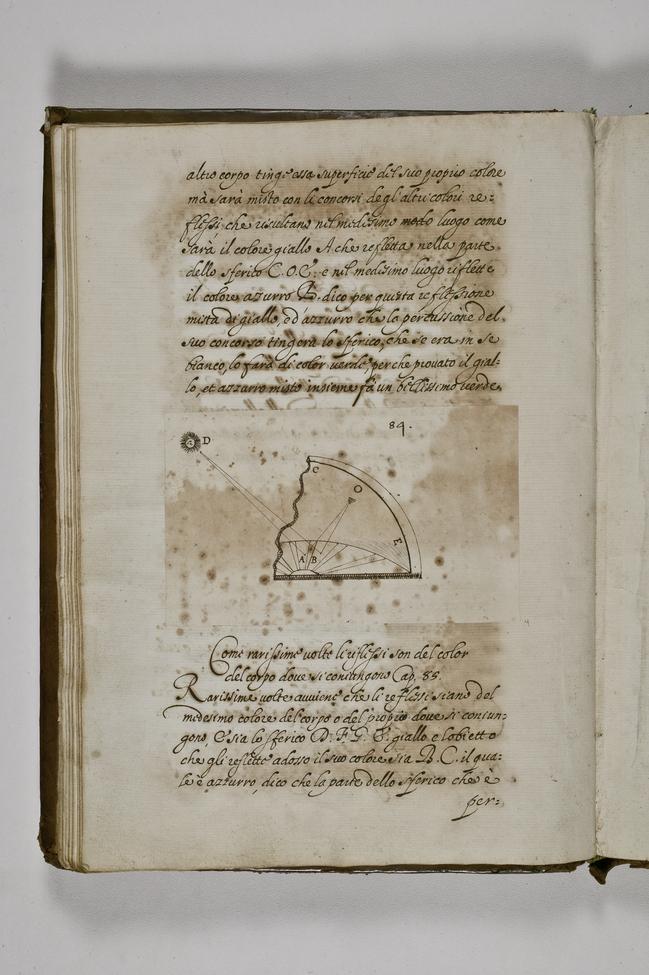 altro corpo tinge essa superficie del suo proprio colore
mà sarà misto con li concorsi degl'altri colori re=
flessi, che risultano nel medesimo modo luogo come
sarà il colore giallo A. che refletta nella parte
dello sferico C.O.E: e nel medesimo luogo riflette
il colore azurro B. dico per questa reflessione
mista di giallo, ed'azzurro che la percussione del
suo concorso tingerà lo sferico, che se era in se
bianco, lo farà di color verde perche provato il gial=
lo, et azzurro misto insieme fà un bellissimo verde.
84.
D
C
O
E
A B
Come rarissime volte li riflessi son del color
del corpo dove si coniungono Cap. 85.
Rarissime volte avviene che li reflessi siano del
medesimo colore del corpo o del proprio dove si coniun=
gono, E sia lo sferico D.F.G.E. giallo e l'obietto
che gli reflette adosso il suo colore sia B.C. il qua=
le è azurro, dico che la parte dello sferico che è
per=